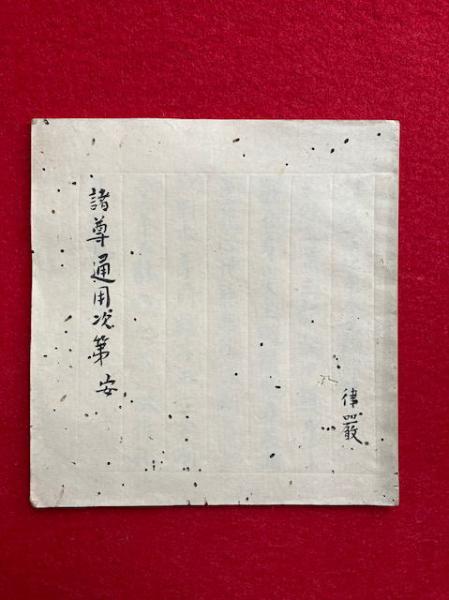 諸尊通用次第 安
律嚴